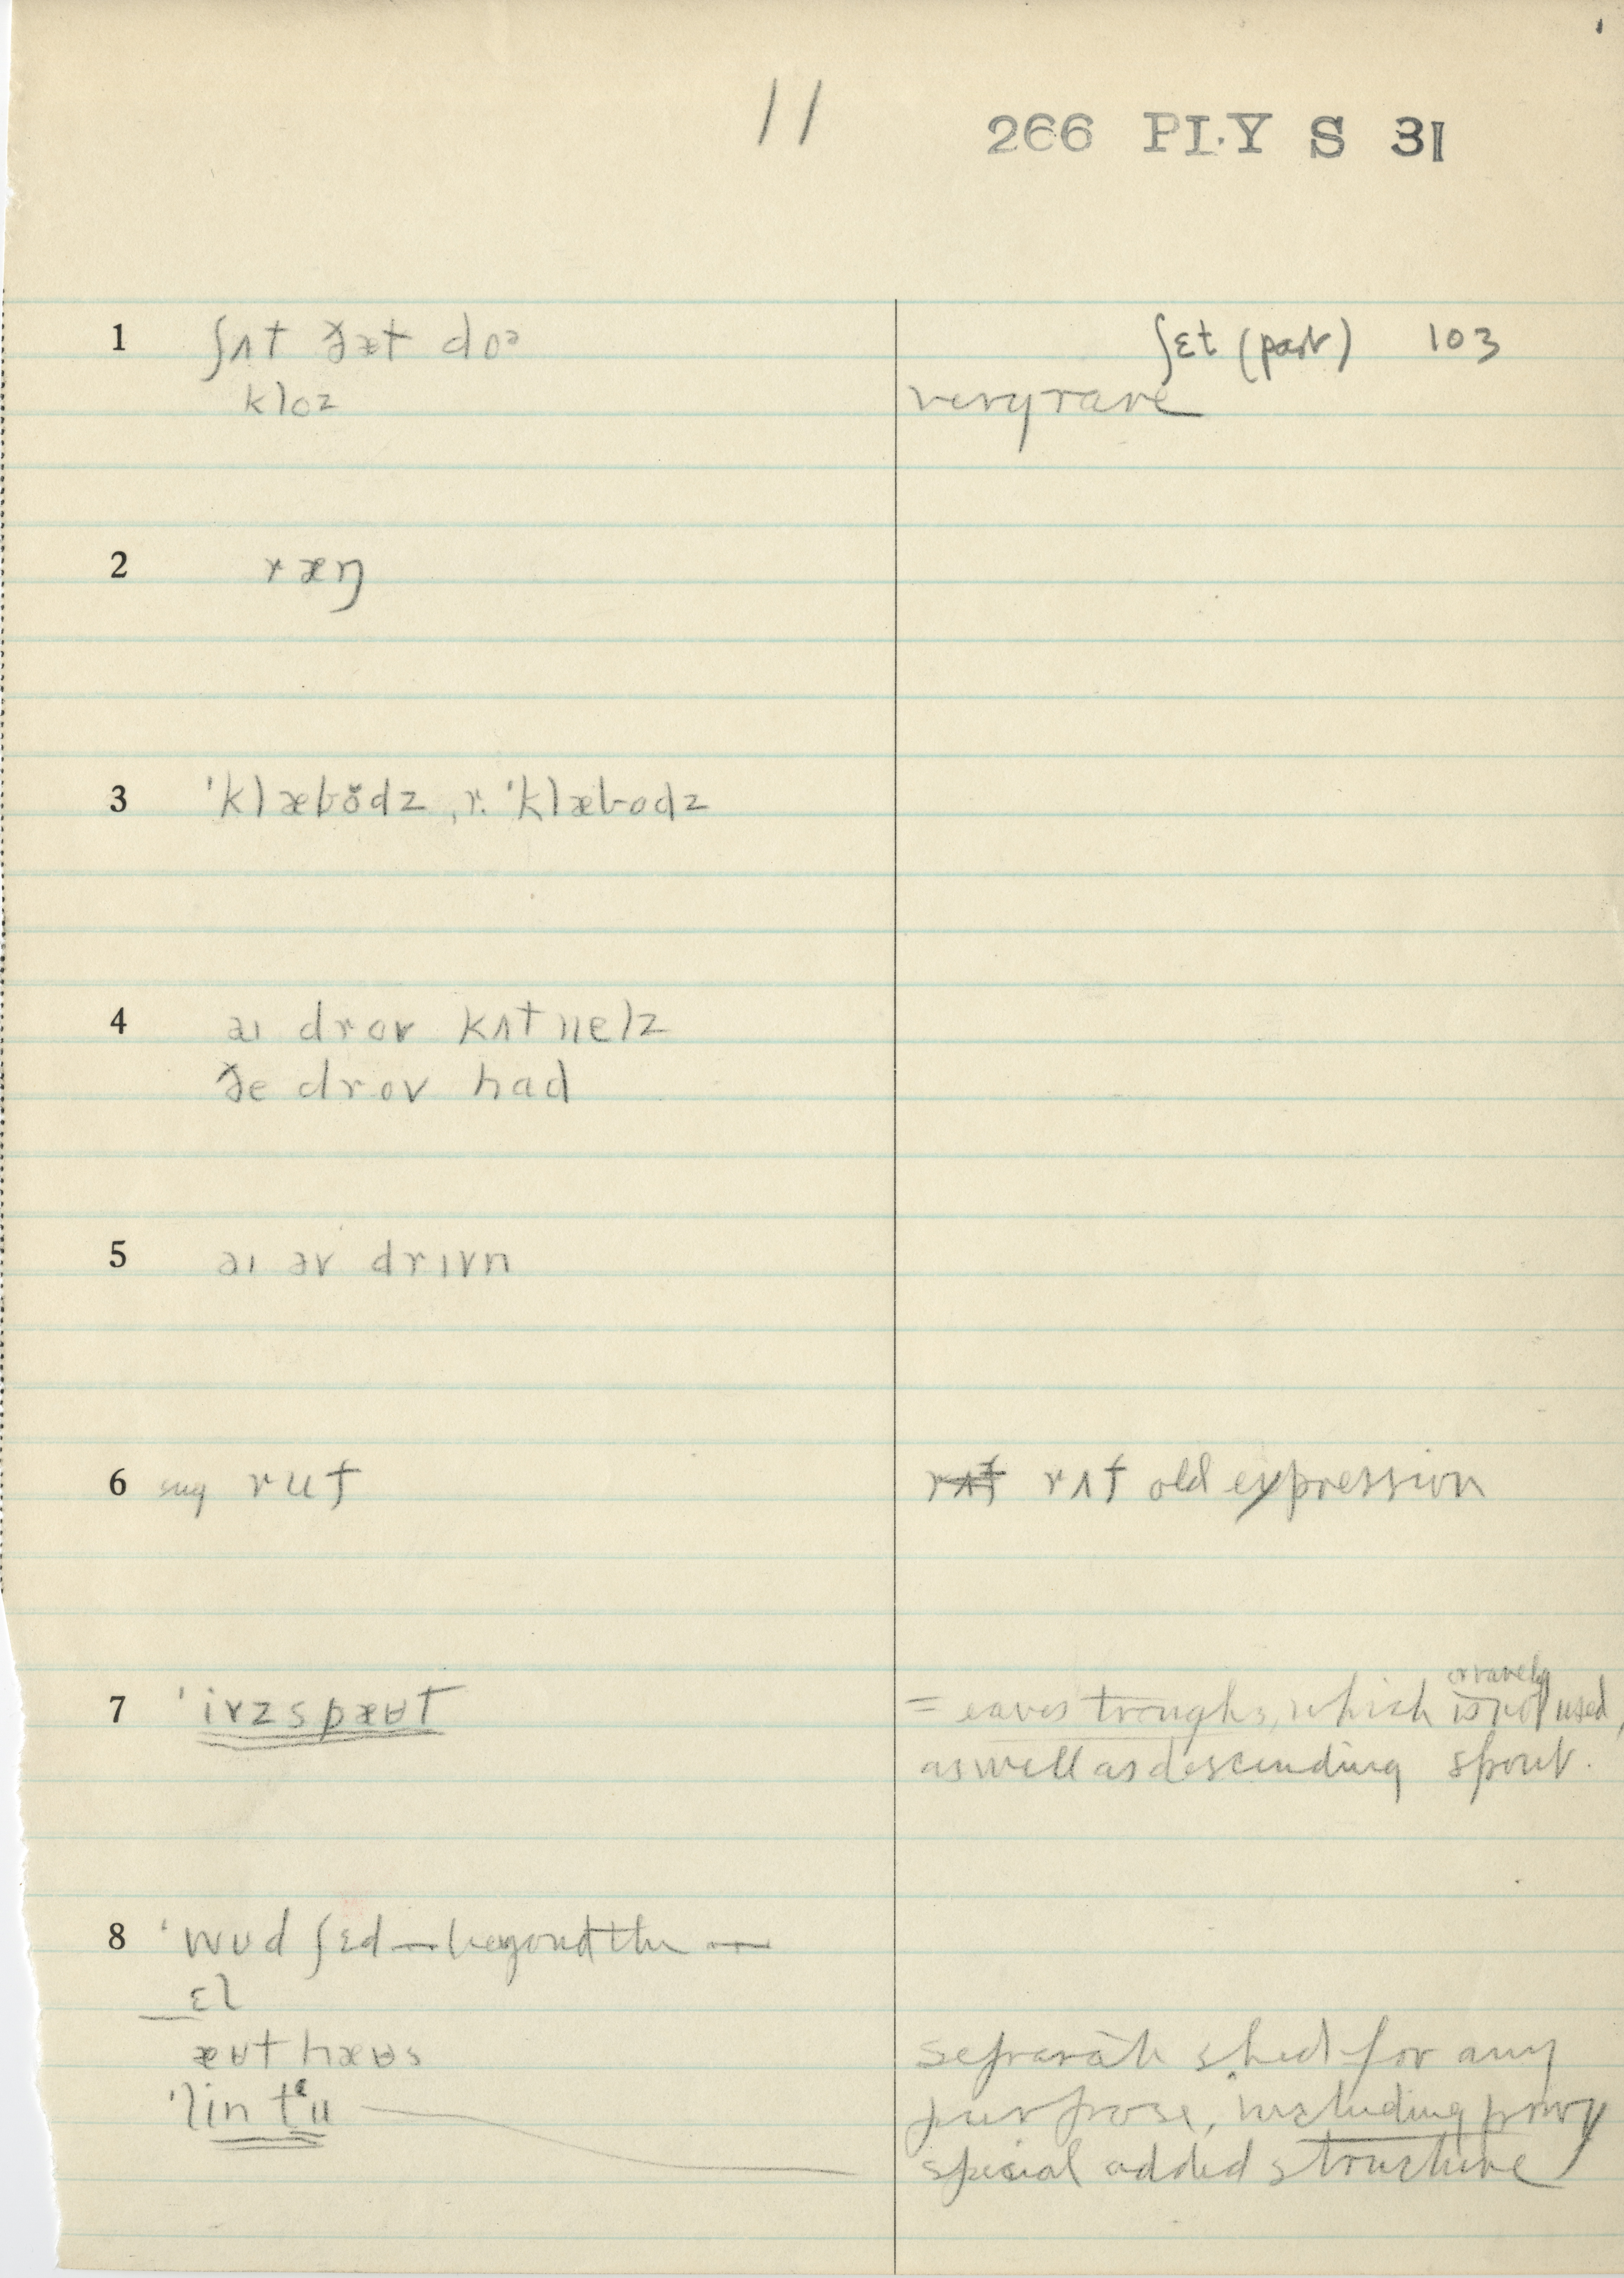 11 266 PLY S 31
1 ʃʌt ðæt doə ʃɛt (past) 103
kloz very rare
2 ræŋ
3 ˈklæbŏdz, r. ˈklæbodz
4 aɪ drov kʌt nelz
ðe drov had
5 aɪ əv drɪvn
6 sug ruf rʌf old expression
or rarely
7 ˈivzspæʉt = eaves troughs, which is not used,
as well as descending spout.
8 ˈwʊd ʃɛd — beyond the —
ɛl
æʉt hæʉs separate shed for any
ˈlin tʻu purpose, including privy
special added structure